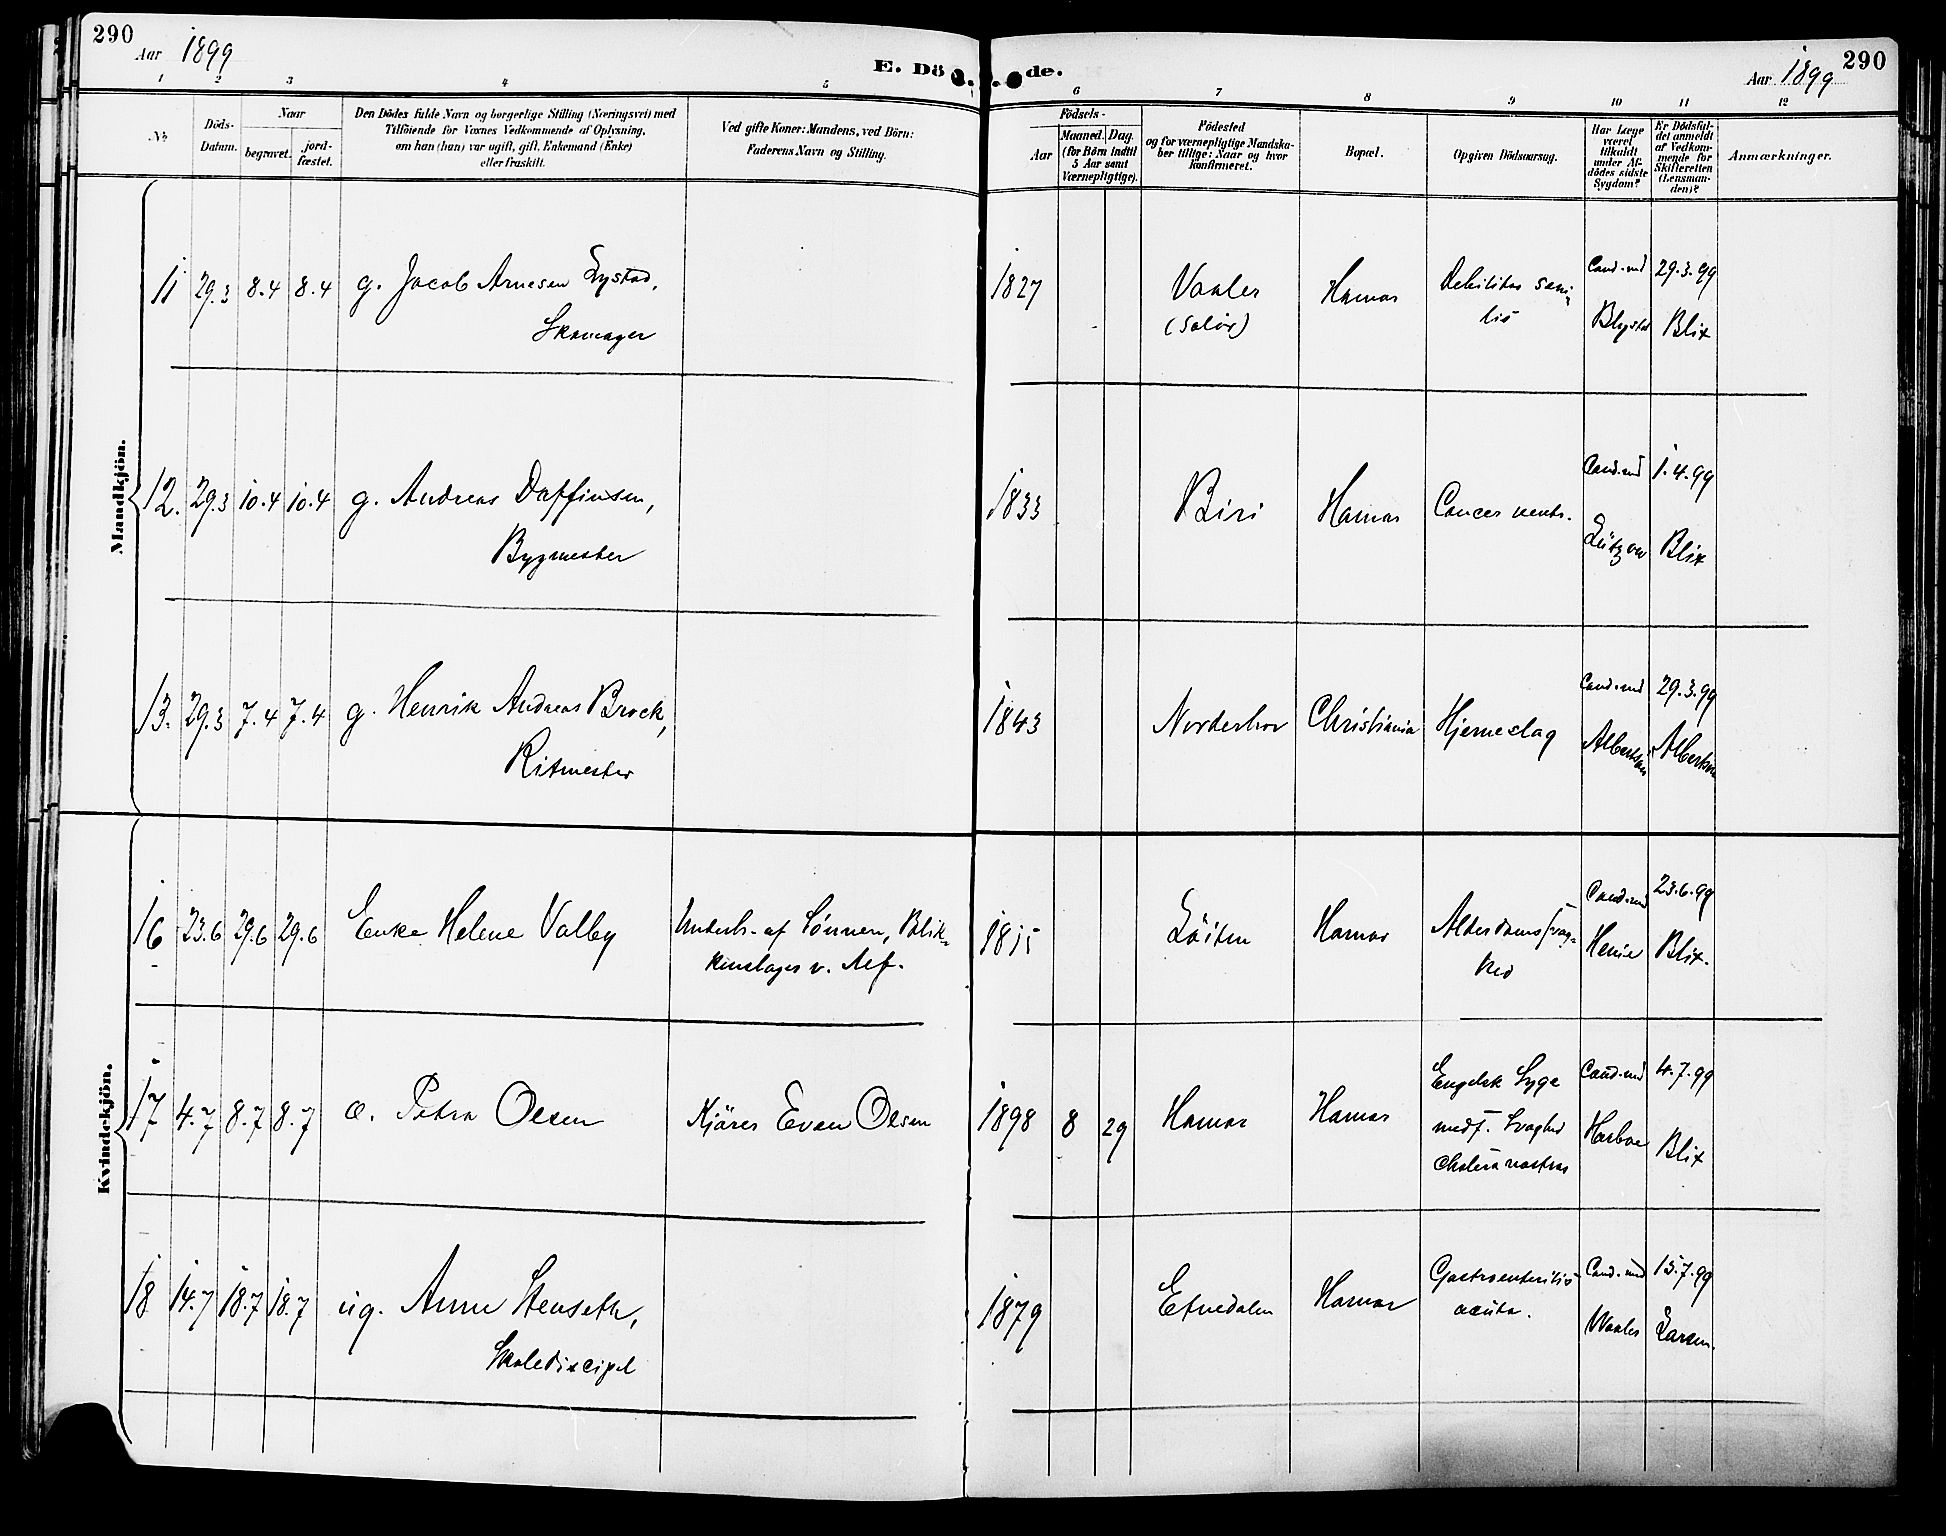 290
Aar 1899
E. Dö de.
Aar 1899
290
1 2 3 4 5 6 7 8 9 10 11 12
No.
Döds-
Datum.
Naar
begravet.
jord-
fæstet.
Den Dödes fulde Navn og borgerlige Stilling (Næringsvei) med
Tilföiende for Voxnes Vedkommende af Oplysning,
om han (hun) var ugift, gift, Enkemand (Enke)
eller fraskilt.
Ved gifte Koner: Mandens, ved Börn:
Faderens Navn og Stilling.
Födsels-
Aar
Maaned. Dag.
(for Börn indtil
5 Aar samt
Værnepligtige).
Födested
og for værnepligtige Mandska-
ber tillige: Naar og hvor
konfirmeret.
Bopæl.
Opgiven Dödsaarsag.
Har Læge
været
tilkaldt
under Af-
dödes sidste
Sygdom?
Er Dödsfal-
det anmeldt
af Vedkom-
mende for
Skifteretten
(Lensman-
den)?
Anmærkninger.
Mandkjön.
11 29.3 8.4 8.4 g. Jacob Arnesen Lystad,
Skomager
1827 Vaaler
(Solør)
Hamar
Debilitas seni-
lis
Cand. med
Blystad
29.3.99
Blix
12. 29.3 10.4 10.4 g. Andreas Daffinsen,
Bygmester
1833 Biri Hamar Cancer ventr.
Cand. med
Lützow
1.4.99
Blix
13. 29.3 7.4 7.4 g. Henrik Andreas Brock,
Ritmester
1843 Norderhov Christiania Hjerneslag
Cand. med
Albertsen
29.3.99
Albertsen
Kvindekjön.
16 23.6 29.6 29.6 Enke Helene Valby
Underh. af Sønnen, Blik-
kenslager v. Alf.
1815 Löiten Hamar
Alderdomssvag-
hed
Cand. med
Henie
23.6.99
Blix.
17 4.7 8.7 8.7 æ. Petra Olsen
Kjører Even Olsen
1898 8 29 Hamar Hamar
Engelsk Syge
medf. Svaghed
cholera nostras
Cand. med
Harboe
4.7.99
Blix
18 14.7 18.7 18.7 ug. Anne Stenseth,
Skolediscipel
1879 Etnedalen Hamar
Gastroenteritis
acuta.
Cand. med
Waaler
15.7.99
Larsen.